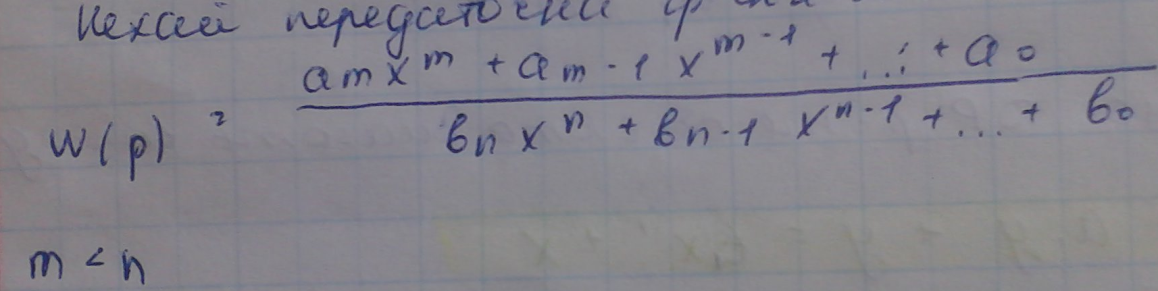 Нехай передаточна
W(p) = (a_m x^m + a_{m-1} x^{m-1} + ... + a_0) / (b_n x^n + b_{n-1} x^{n-1} + ... + b_0)
m < n